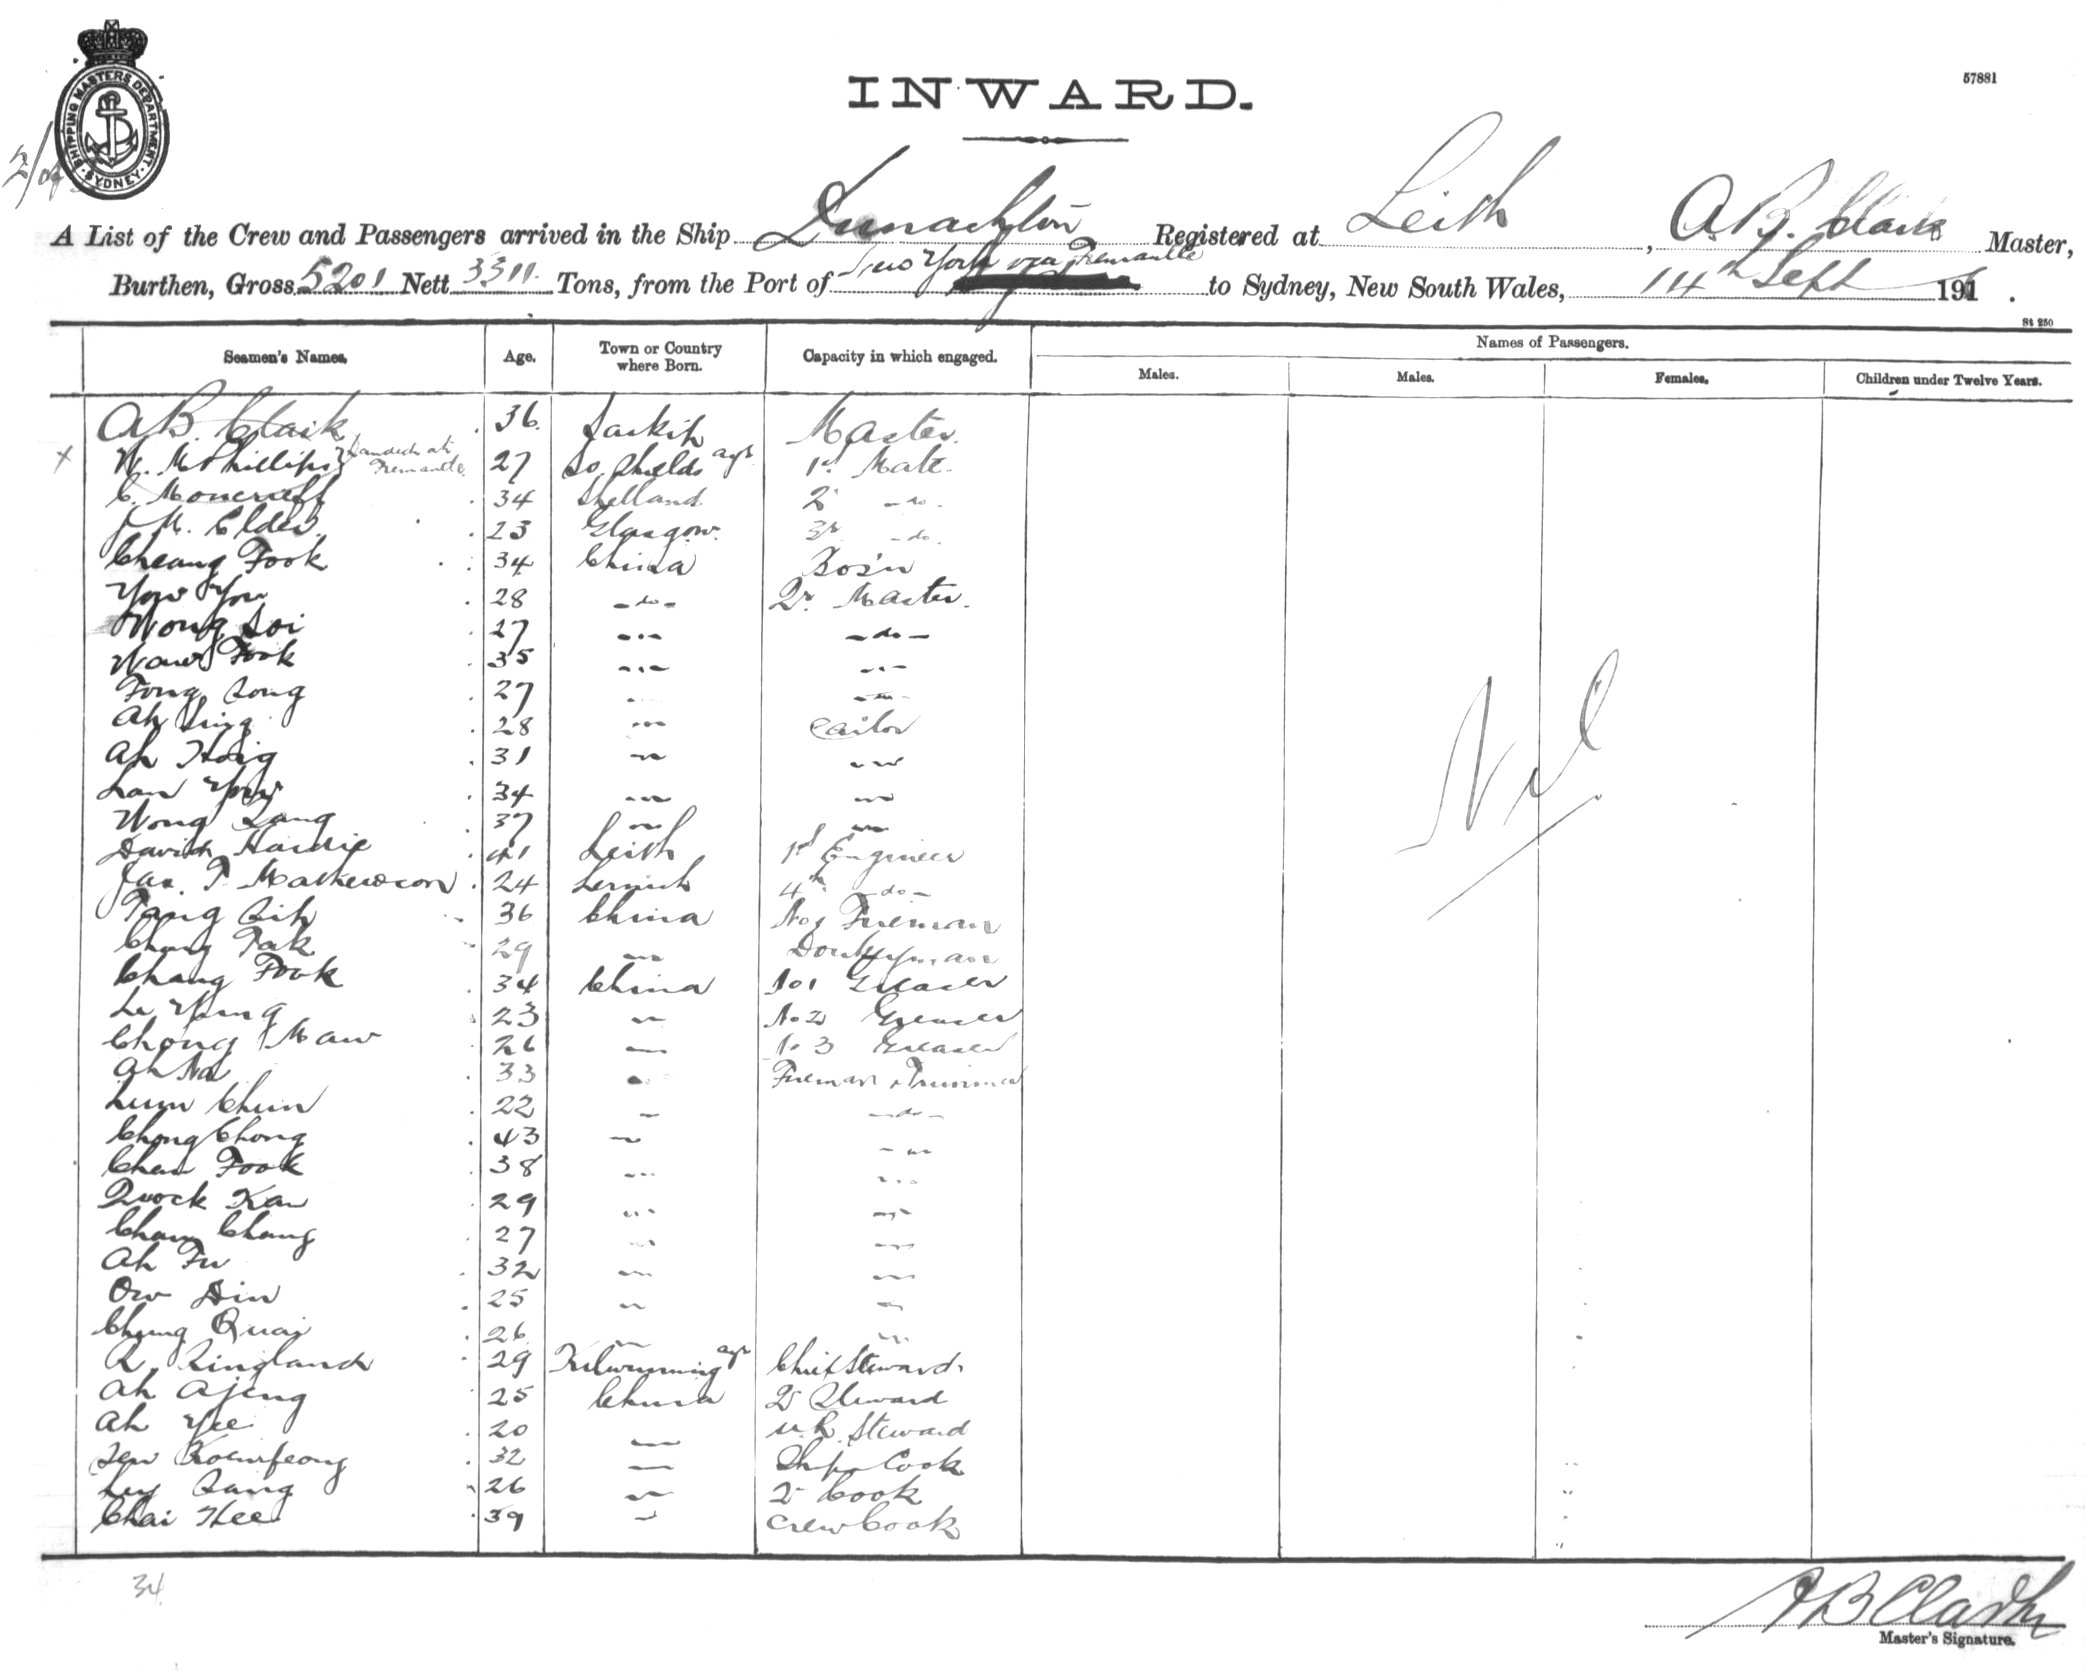 57881
SHIPPING MASTERS DEPARTMENT · SYDNEY ·
INWARD.
A List of the Crew and Passengers arrived in the Ship Dunachton Registered at Leith, A.B. Clark Master,
Burthen, Gross 5201 Nett 3311 Tons, from the Port of New York via Fremantle to Sydney, New South Wales, 14th Sept 191 .
St 250
Seamen's Names. Age. Town or Country where Born. Capacity in which engaged. Names of Passengers.
Males. Males. Females. Children under Twelve Years.
A B. Clark 36 Master
x W. McPhillips Landed at Fremantle 27 So. Shields 1st Mate
C. Moncrieff 34 Shetland 2 -do-
J M. Elder 23 Glasgow 3r -do-
Cheang Fook 34 China Bos'n
Yow You 28 -do- Qr. Master
Wong Soi 27 -do-
Fook 35
Fong Song 27
Ah Sing 28 Sailor
Ah 31
Lan 34
Wong 37
David Hardie 41 Leith 1st Engineer
Jas. T. Mathewson 24 Lerwick 4th -do-
Tang 36 China No 1 Fireman
Chang Tak 29 Donkeyman
Chang Fook 34 China No 1 Greaser
23 No 2 Greaser
Chong Maw 26 No 3 Greaser
Ah 33 Fireman & Trimmer
Lum Chun 22 -do-
Chong Chong 43
Chan Fook 38
Quock Kan 29
Cham Chang 27
Ah Fu 32
Ow Din 25
Chung Quai 26
R. Ringland 29 Kilwinning Ayr Chief Steward
Ah Ajeng 25 China 2 Steward
Ah Yee 20 M.R. Steward
32 Ships Cook
26 2 Cook
Chai Hee 39 Crew Cook
Nil
34
A B Clark
Master's Signature.